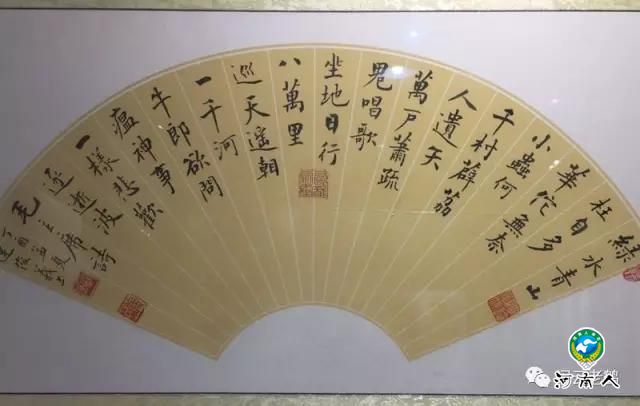 綠水青山
枉自多
華佗無奈
小蟲何
千村薜荔
人遺矢
萬戶蕭疏
鬼唱歌
坐地日行
八萬里
巡天遥朝
一千河
牛郎欲問
瘟神事
一樣悲歡
逐逝波
毛主席詩
丁酉孟夏
河南人